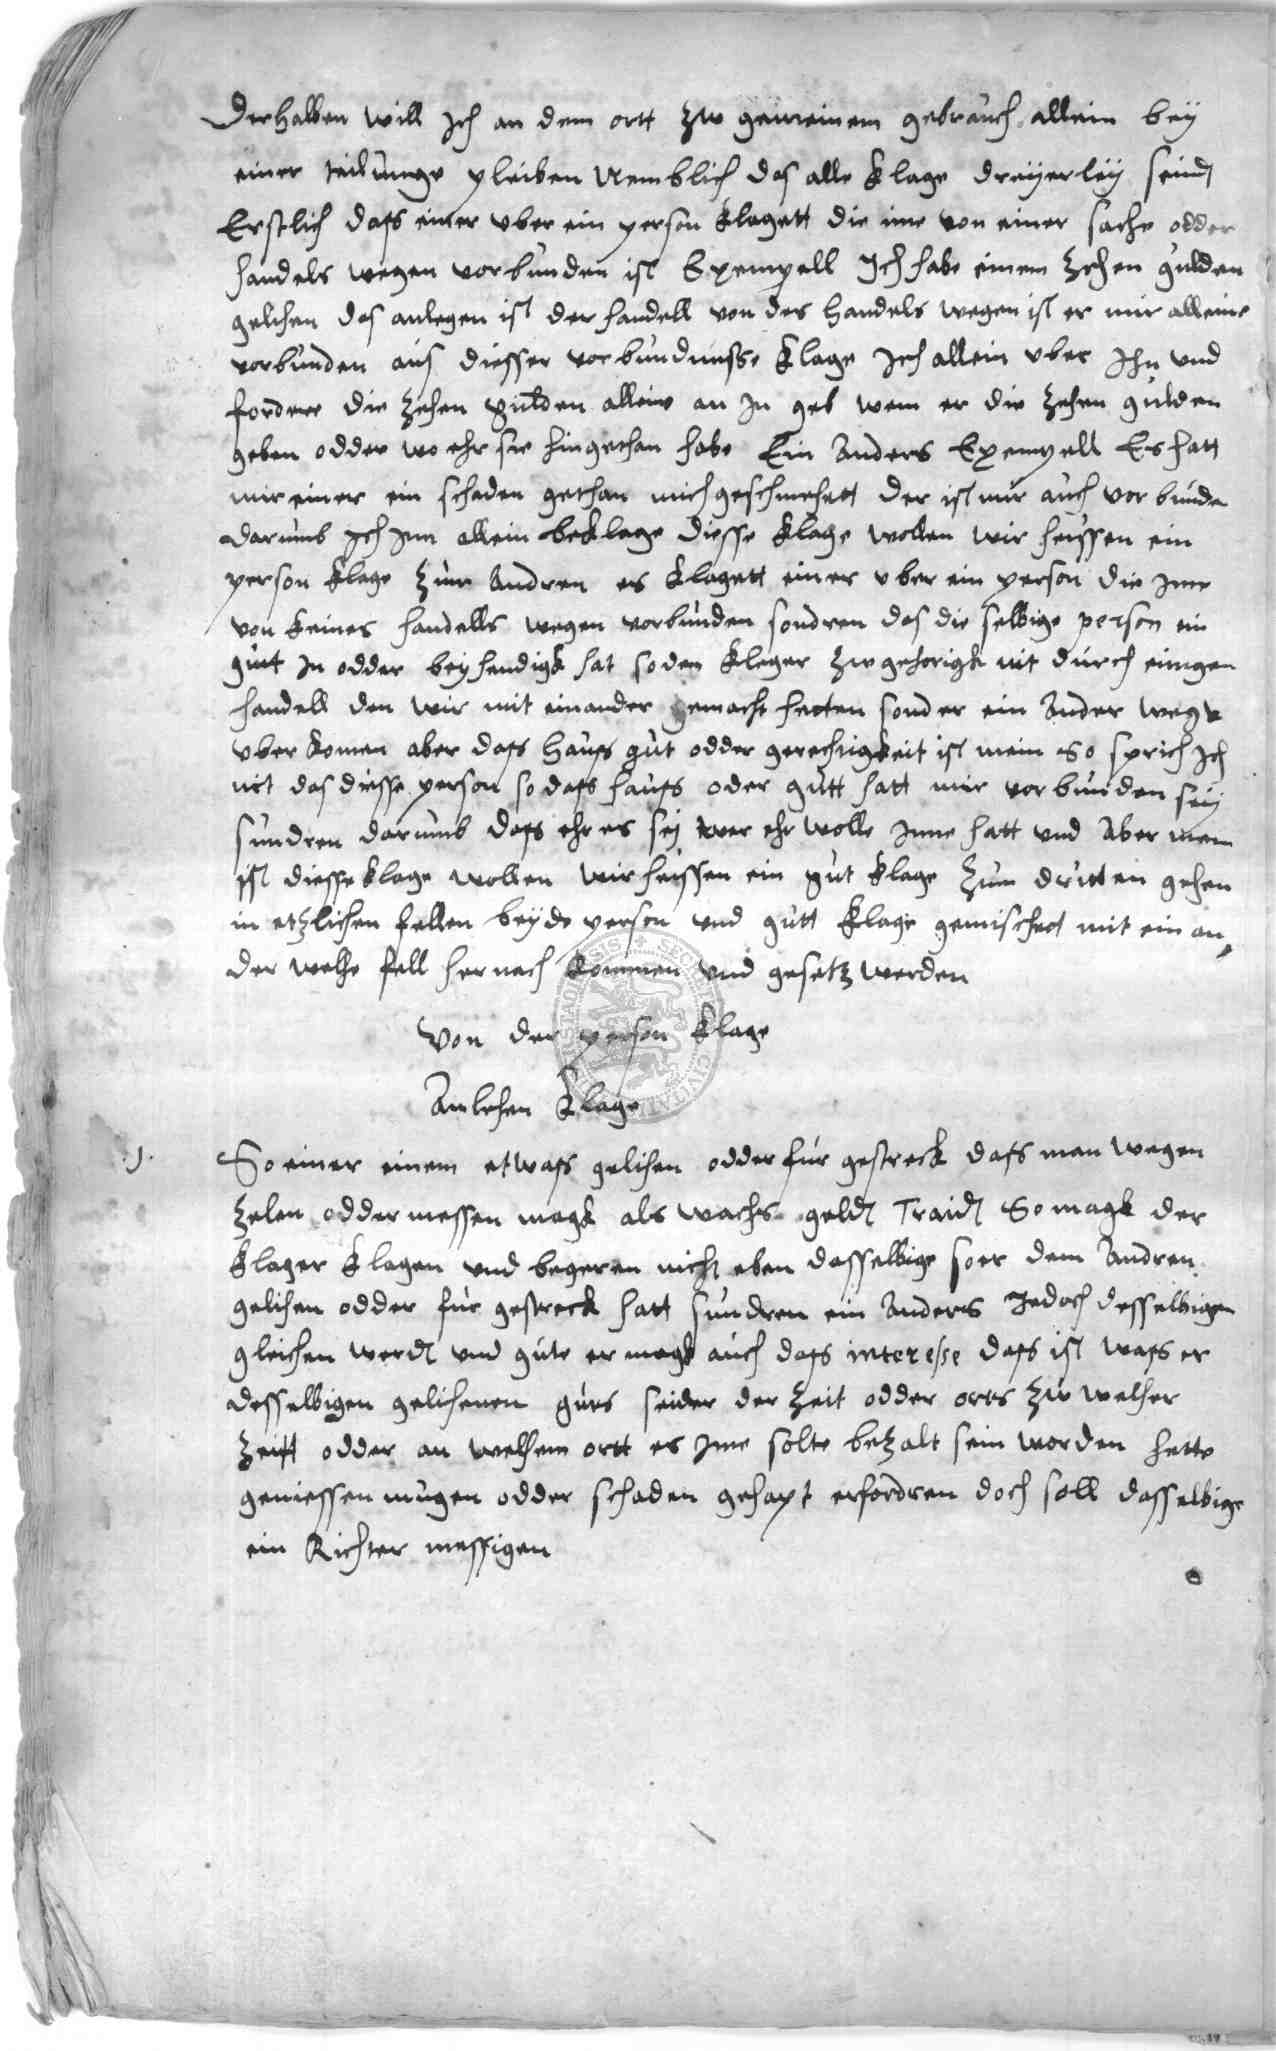 Derhalben will Ich an dem ortt zw gemeinem gebrauch allein bey
einer teilunge pleiben Nemblich das alle klage dreyerley seind
Erstlich dass einer vber ein person klagett die ime von einer sache odder
handels wegen vorbunden ist Exempell Ich habe einem zehen gulden
gelihen das anlegen ist der handell von des handels wegen ist er mir alleine
vorbunden aus diesser vorbundnusse klage Ich allein vber Ihn vnd
fordere die zehen gulden allein an In geb wem er die zehen gulden
geben odder wo ehr sie hingethan habe Ein Anders Exempell Es hatt
mir einer ein schaden gethan mich geschmehett der ist mir auch vorbunden
darumb Ich Inn allein beklage diesse klage wollen wir heissen ein
person klage Zum Andren es klagett einer vber ein person die Ime
von keines handells wegen vorbunden sondren das die selbige person ein
gutt In odder beyhendigk hat so dem kleger zwgehorigk nit durch einigen
handell den wir mit einander gemacht hetten sonder ein Ander wegk
vberkomen aber dass hauss gut odder gerechtigkeit ist mein So sprich Ich
nit das diesse person so dass hauss oder gutt hatt mir vorbunden sey
sundren darumb dass ehr es sey wer ehr wolle Inne hatt vnd Aber mein
ist diesse klage wollen wir heissen ein gut klage Zum dritten gehen
in etzlichen fellen beyde person vnd gutt klage gemischet mit ein an
der welhe fell hernach kommen vnd gesetz werden
Von der person klage
Anlehen klage
1.
So einer einem etwass gelihen odder fur gestreck dass man wegen
zelen odder messen magk als wachs geldt Traidt So magk der
klager klagen vnd begeren nicht eben dasselbige so er dem Andren
gelihen odder fur gestreck hatt sundren ein Anders Jedoch desselbigen
gleichen werdt vnd gute er magk auch dass interesse dass ist wass er
desselbigen gelihenen guts seider der zeit odder orts zw welher
zeitt odder an welhem ortt es Ime solte bezalt sein worden hette
geniessen mugen odder schaden gehapt erfordren doch soll dasselbige
ein Richter messigen